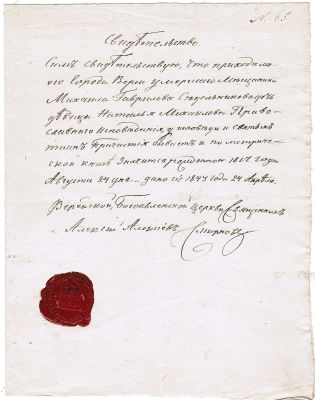 Л. 65
Свидѣтельство.
Симъ свидѣтельствую, что прихода мо-
его Города Вереи умершаго Мѣщанина
Михаила Гаврилова дочь
дѣвица Наталья Михайлова Право-
славнаго Исповѣданія у исповѣди и святыхъ
таинъ Причастія бываетъ и по метриче-
ской книгѣ Значится рожденною года
Августа 24 дня – дано сіе 1843 года 24 Апрѣля.
Верейской, Богоявленской Церкви Священникъ
Алексій Алексѣевъ Смирновъ